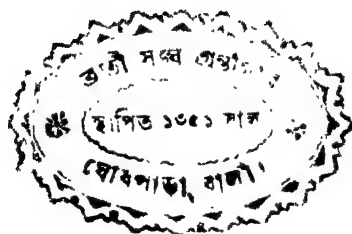 সঙ্ঘ গ্রন্থা
স্থাপিত ১৩৫১ সাল
ঘোষপাড়া, বালী।